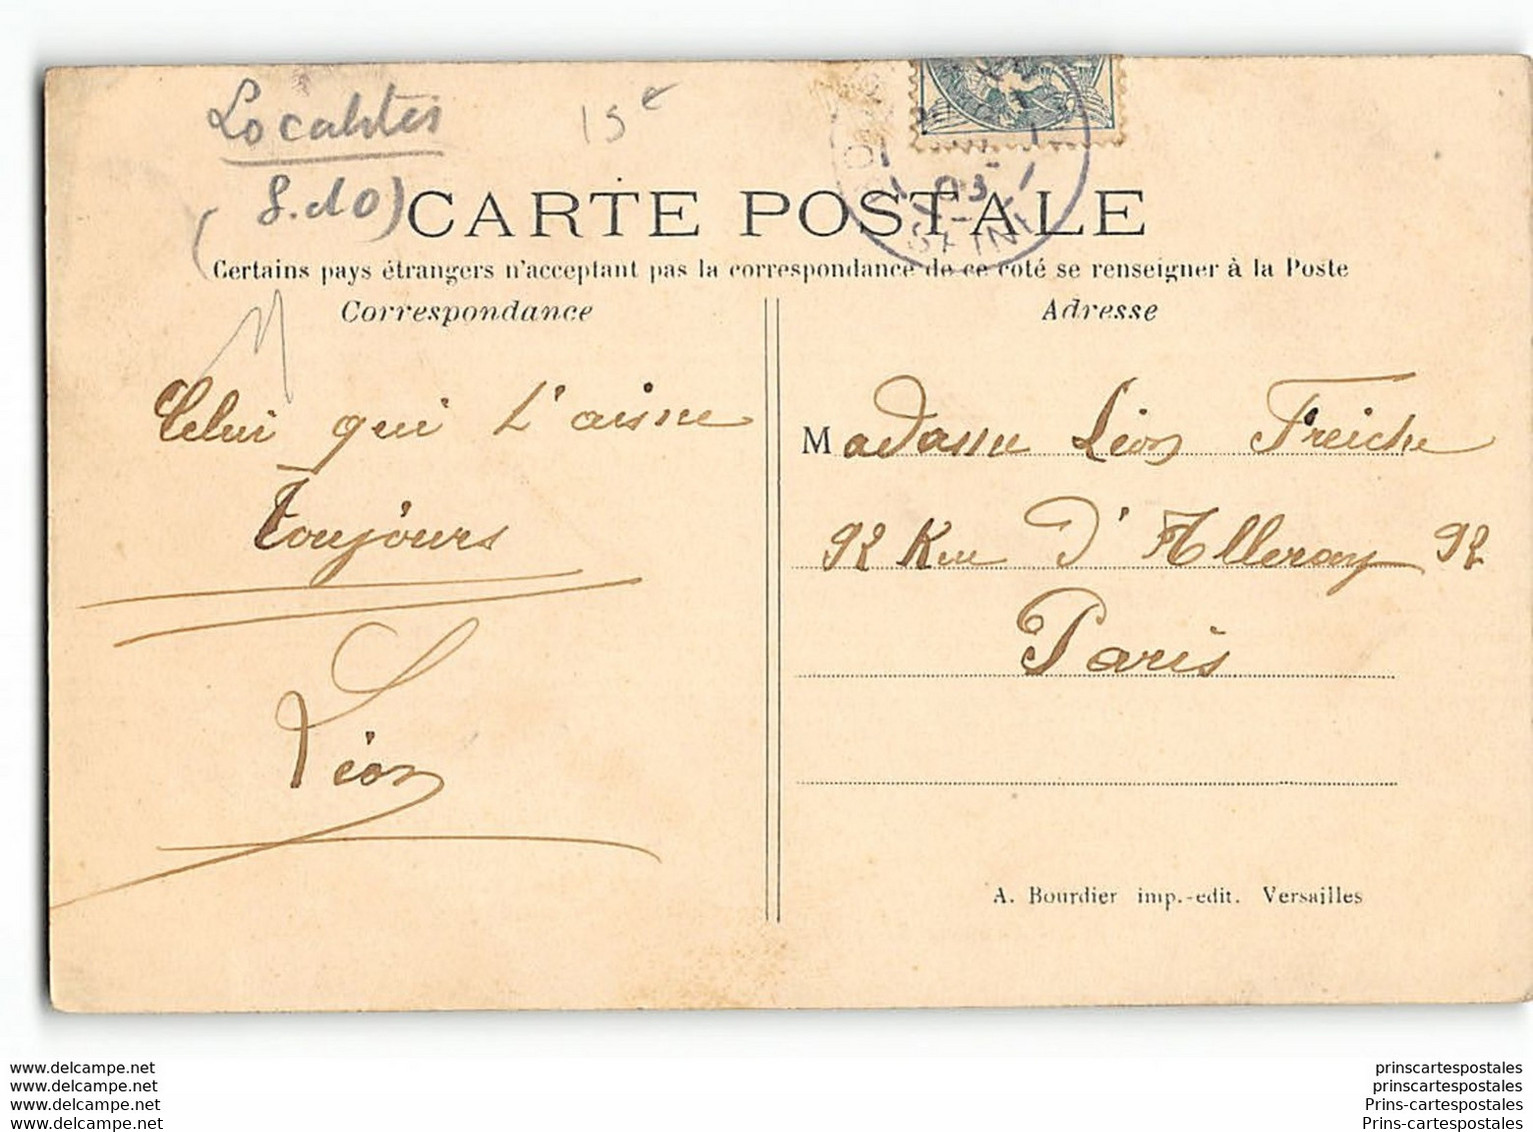 Localités
15 €
(S. d O)
CARTE POSTALE
Certains pays étrangers n'acceptant pas la correspondance de ce coté se renseigner à la Poste
Correspondance
Adresse
Celui qui t'aime
Toujours
Léon
Madame Léon Freiche
92 Rue d'Alleray 92
Paris
A. Bourdier imp.-edit. Versailles
www.delcampe.net
www.delcampe.net
www.delcampe.net
www.delcampe.net
prinscartespostales
prinscartespostales
Prins-cartespostales
Prins-cartespostales